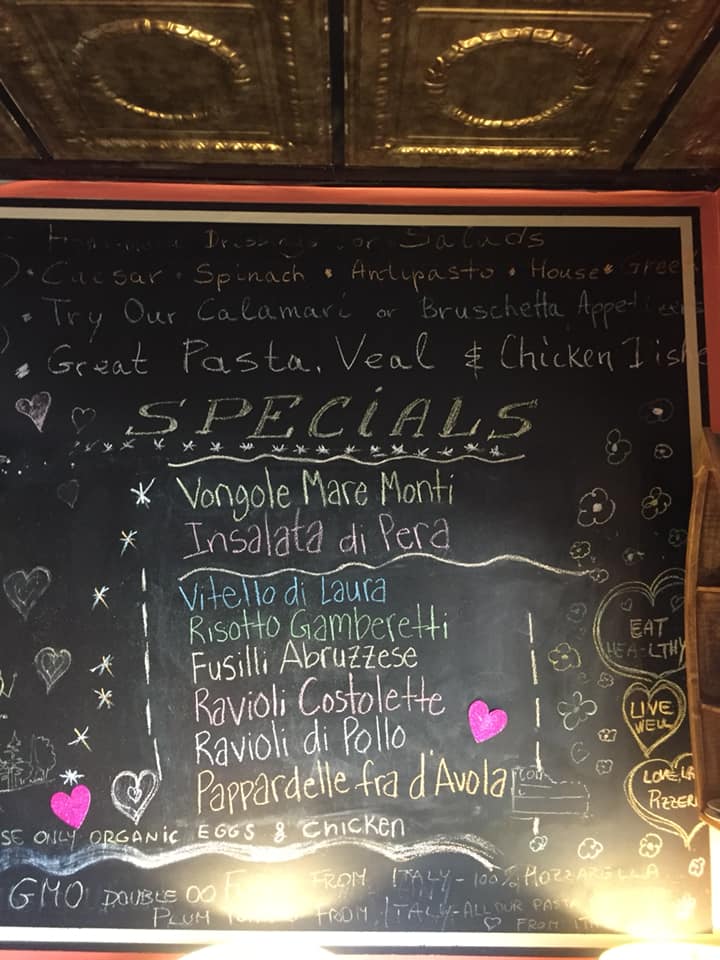 Dressings for Salads
• Caesar • Spinach • Antipasto • House • Greek
• Try Our Calamari or Bruschetta Appetizers
• Great Pasta, Veal & Chicken Dishe
SPECiALS
Vongole Mare Monti
Insalata di Pera
Vitello di Laura
Risotto Gamberetti
Fusilli Abruzzese
Ravioli Costolette
Ravioli di Pollo
Pappardelle fra d'Avola
SE ONLY ORGANIC EGGS & CHicKEN
GMO DOUBLE 00 FROM ITALY - 100% MOZZARELLA
PLUM FROM ITALY - ALL OUR PASTA
FROM
EAT
HEALTHY
LIVE
WELL
LOVE
PIZZER